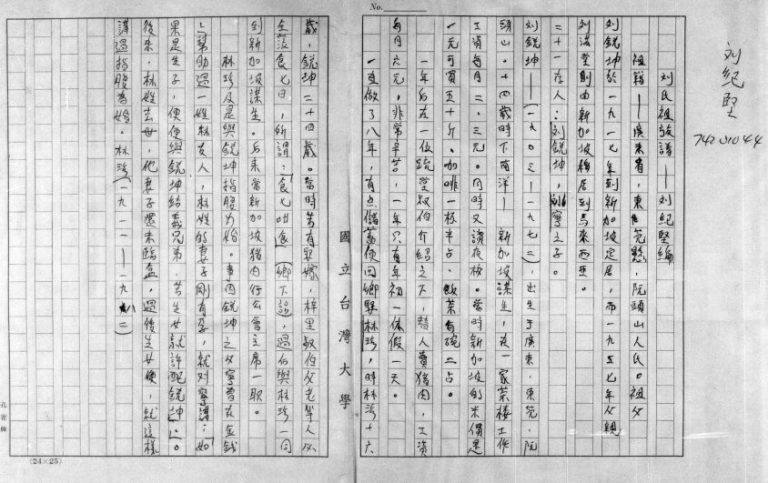 No.
刘紀堅
74201044
刘氏祖敘譜——刘紀堅編
祖籍——廣東省,東莞縣,阮頭山人氏。祖父
刘銳坤於一九一七年到新加坡定居,而一九五七年父親
刘滿堅則由新加坡移居到馬來西亞。
二十一世人:刘銳坤,刘寧之子。
刘銳坤——(一九〇三——一九七三),出生于廣東,東莞,阮
頭山。十四歲時下南洋——新加坡謀生,在一家茶樓工作
工資每月二、三元。同時又讀夜校。當時新加坡的米價是
一元可買五十斤。咖啡一杯半占、飯菜每碗二占。
一年后在一位疏堂叔伯介紹之下,替人賣猪肉,工資
每月六元,非常辛苦,一年只有年初一休假一天。
一直做了八年,有点儲蓄便回鄉娶林珍,時林珍十六
歲,銳坤二十四歲。當時若有娶嫁,梓里叔伯父老舉人必
至渡食七日,所謂:「食七咁食」(鄉下話),過后與林珍一同
到新加坡謀生。后來當新加坡猪肉行公會主席一职。
林珍及是與銳坤指腹为婚。事因銳坤之父寧曾在金錢
上幫助過一姓林友人,林姓的妻子刚有孕,就对寧講:「如
果是生子,便使與銳坤結義兄弟,若生女就許配銳坤」。
後來,林姓去世,他妻子還未臨盆,過後生女便,就這樣
講過指腹為婚。林珍(一九一一——一九八二)
國立台灣大學
(24×25)